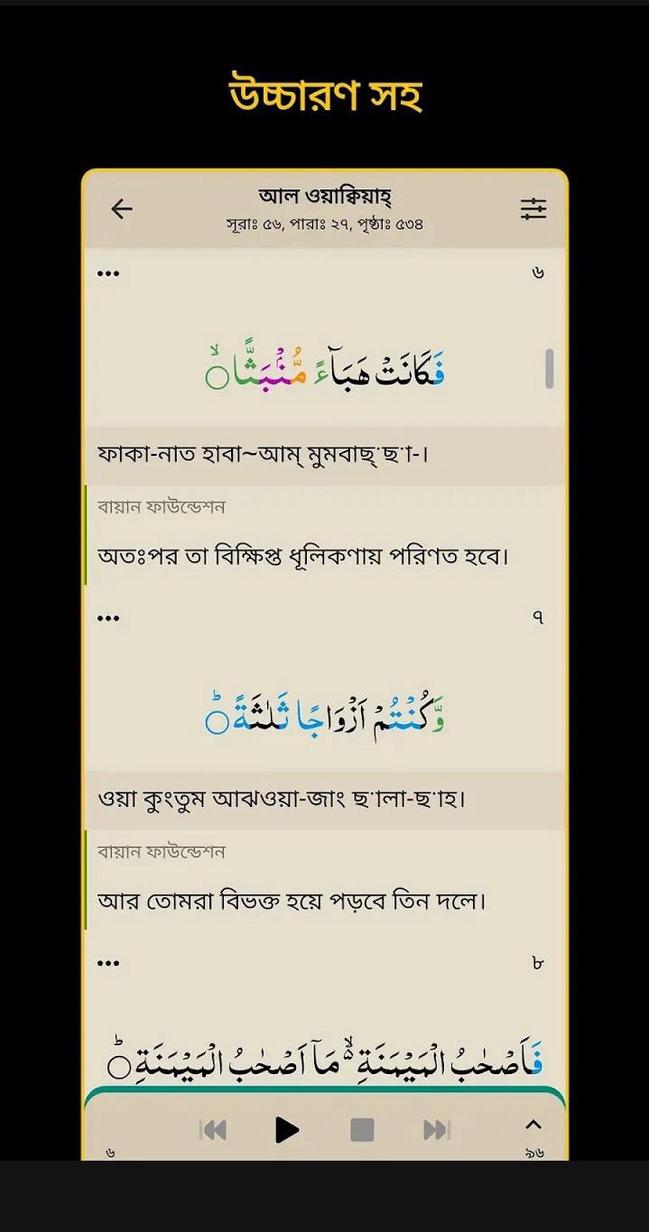 উচ্চারণ সহ
আল ওয়াক্বিয়াহ্
সূরাঃ ৫৬, পারাঃ ২৭, পৃষ্ঠাঃ ৫৩৪
৬
فَكَانَتْ هَبَآءً مُّنْۢبَثًّا ۙ
ফাকা-নাত হাবা~আম্ মুমবাছ্ˈছˈা-।
বায়ান ফাউন্ডেশন
অতঃপর তা বিক্ষিপ্ত ধূলিকণায় পরিণত হবে।
৭
وَّكُنْتُمْ اَزْوَاجًا ثَلٰثَةً ؕ
ওয়া কুংতুম আঝওয়া-জাং ছˈালা-ছˈাহ।
বায়ান ফাউন্ডেশন
আর তোমরা বিভক্ত হয়ে পড়বে তিন দলে।
৮
فَاَصْحٰبُ الْمَيْمَنَةِ ۙ۬ مَاۤ اَصْحٰبُ الْمَيْمَنَةِ ؕ
৬ ৯৬